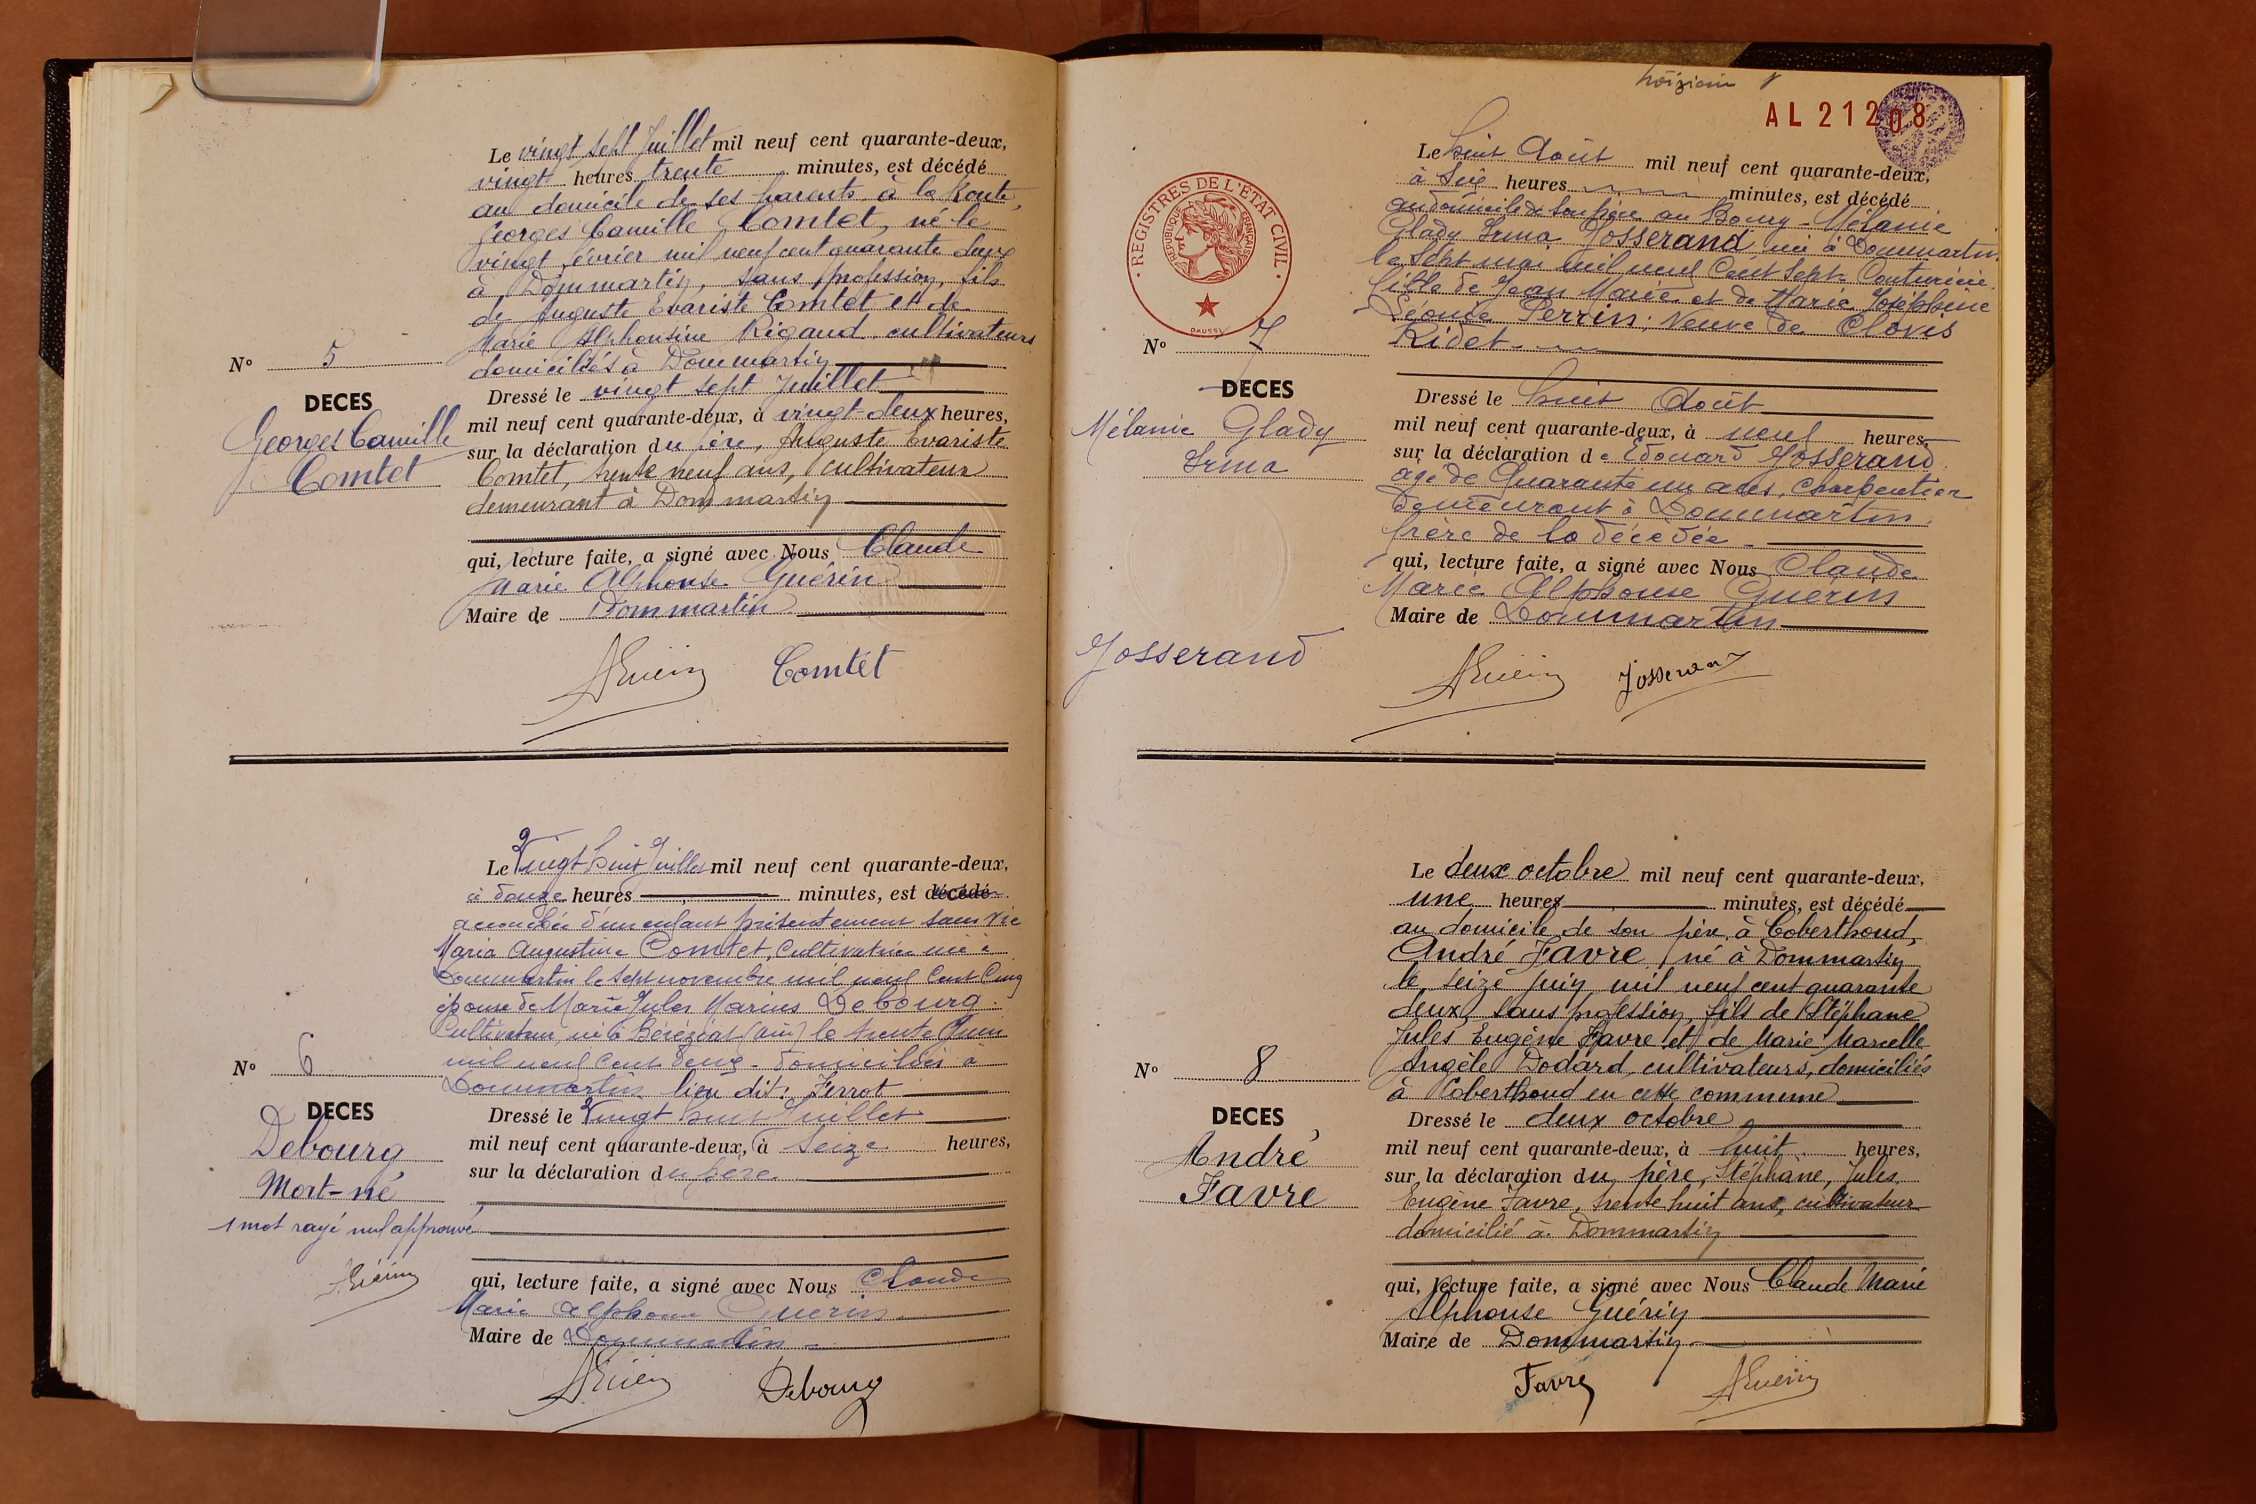 Le vingt sept Juillet mil neuf cent quarante-deux,
vingt heures trente minutes, est décédé
au domicile de ses parents à la Route,
Georges Camille Comtet, né le
vingt février mil neuf cent quarante deux
à Dommartin, sans profession, fils
de Auguste Evariste Comtet et de
Marie Alphonsine Rigaud cultivateurs
domiciliés à Dommartin
N° 5
DECES
Georges Camille
Comtet
Dressé le vingt sept Juillet
mil neuf cent quarante-deux, à vingt-deux heures,
sur la déclaration du père, Auguste Evariste
Comtet, trente neuf ans, cultivateur
demeurant à Dommartin
qui, lecture faite, a signé avec Nous Claude
Marie Alphonse Guérin
Maire de Dommartin
AGuérin Comtet
Le Vingt huit Juillet mil neuf cent quarante-deux,
à douze heures minutes, est décédé
accouchée d'un enfant présentement sans vie
Maria Augustine Comtet, Cultivatrice née à
Dommartin le sept novembre mil neuf Cent Cinq
épouse de Marie Jules Marius Debourg
Cultivateur né à Béréziat (Ain) le trente Juin
mil neuf cent deux - domiciliés à
Dommartin lieu dit: Ferrot
N° 6
DECES
Debourg
Mort-né
1 mot rayé nul approuvé
AGuérin
Dressé le Vingt huit Juillet
mil neuf cent quarante-deux, à Seize heures,
sur la déclaration du père
qui, lecture faite, a signé avec Nous Claude
Marie Alphonse Guérin
Maire de Dommartin
AGuérin Debourg
AL 21208
REGISTRES DE L'ETAT CIVIL
REPUBLIQUE FRANÇAISE
DAUSSY
Le huit Août mil neuf cent quarante-deux,
à Six heures minutes, est décédé
au domicile de son frère au Bourg - Mélanie
Glady Irma Josserand née à Dommartin
le sept mai mil neuf Cent Sept - Couturière
fille de Jean Marie et de Marie Joséphine
Léonise Perrin; Veuve de Clovis
Ridet
N° 7
DECES
Mélanie Glady
Irma
Josserand
Dressé le huit Août
mil neuf cent quarante-deux, à neuf heures,
sur la déclaration de Edouard Josserand
âgé de Quarante un ans, Charpentier
demeurant à Dommartin,
frère de la décédée -
qui, lecture faite, a signé avec Nous Claude
Marie Alphonse Guérin
Maire de Dommartin
AGuérin Josserand
Le deux octobre mil neuf cent quarante-deux,
une heures minutes, est décédé
au domicile de son père, à Coberthoud,
André Favre, né à Dommartin
le seize juin mil neuf cent quarante
deux, sans profession, fils de Stéphane
Jules Eugène Favre et de Marie Marcelle
Angèle Dodard, cultivateurs, domiciliés
à Coberthoud en cette commune
N° 8
DECES
André
Favre
Dressé le deux octobre
mil neuf cent quarante-deux, à huit heures,
sur la déclaration du père, Stéphane, Jules
Eugène Favre, trente huit ans, cultivateur
domicilié à Dommartin
qui, lecture faite, a signé avec Nous Claude Marie
Alphonse Guérin
Maire de Dommartin
Favre AGuérin